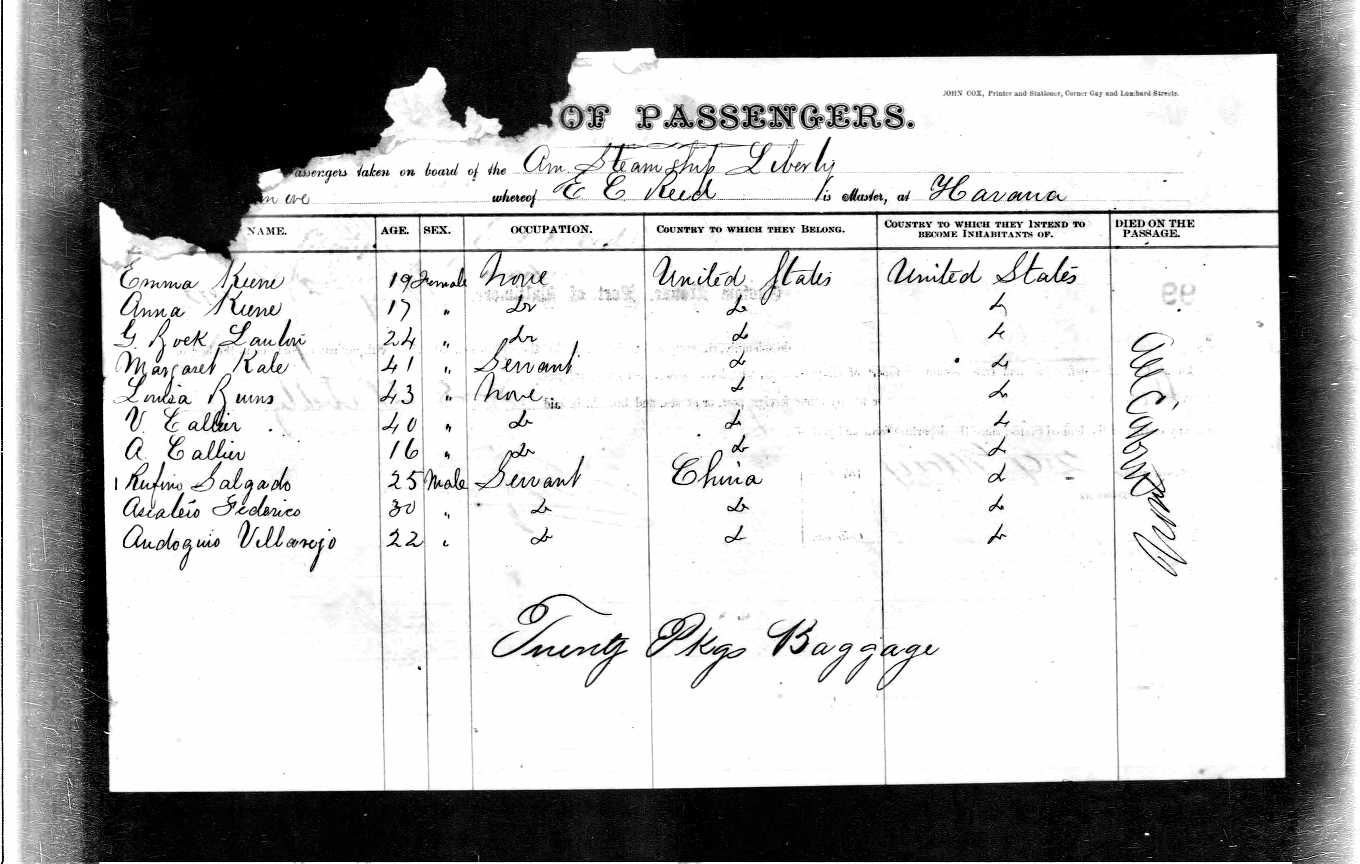 JOHN COX, Printer and Stationer, Corner Gay and Lombard Streets.
OF PASSENGERS.
assengers taken on board of the Am Steamship Liberty
whereof E E Reed is Master, at Havana
NAME. AGE. SEX. OCCUPATION. COUNTRY TO WHICH THEY BELONG. COUNTRY TO WHICH THEY INTEND TO BECOME INHABITANTS OF. DIED ON THE PASSAGE.
Emma Keene 19 Female None United States United States
Anna Keene 17 " Do Do Do
G. 24 " Do Do Do
Margaret Kate 41 " Servant Do Do
Louisa 43 " None Do Do
V. Callier 40 " Do Do Do
A. Callier 16 " Do Do Do
1 Rufino Salgado 25 Male Servant China Do
Federico 30 " Do Do Do
Villarejo 22 " Do Do Do
Twenty Pkgs Baggage
99